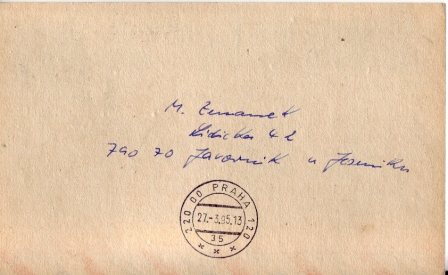 M. Zemanek
Lidická 42
790 70 Javorník u Jeseníku
220 00 PRAHA 120
27.-3.85.13
35